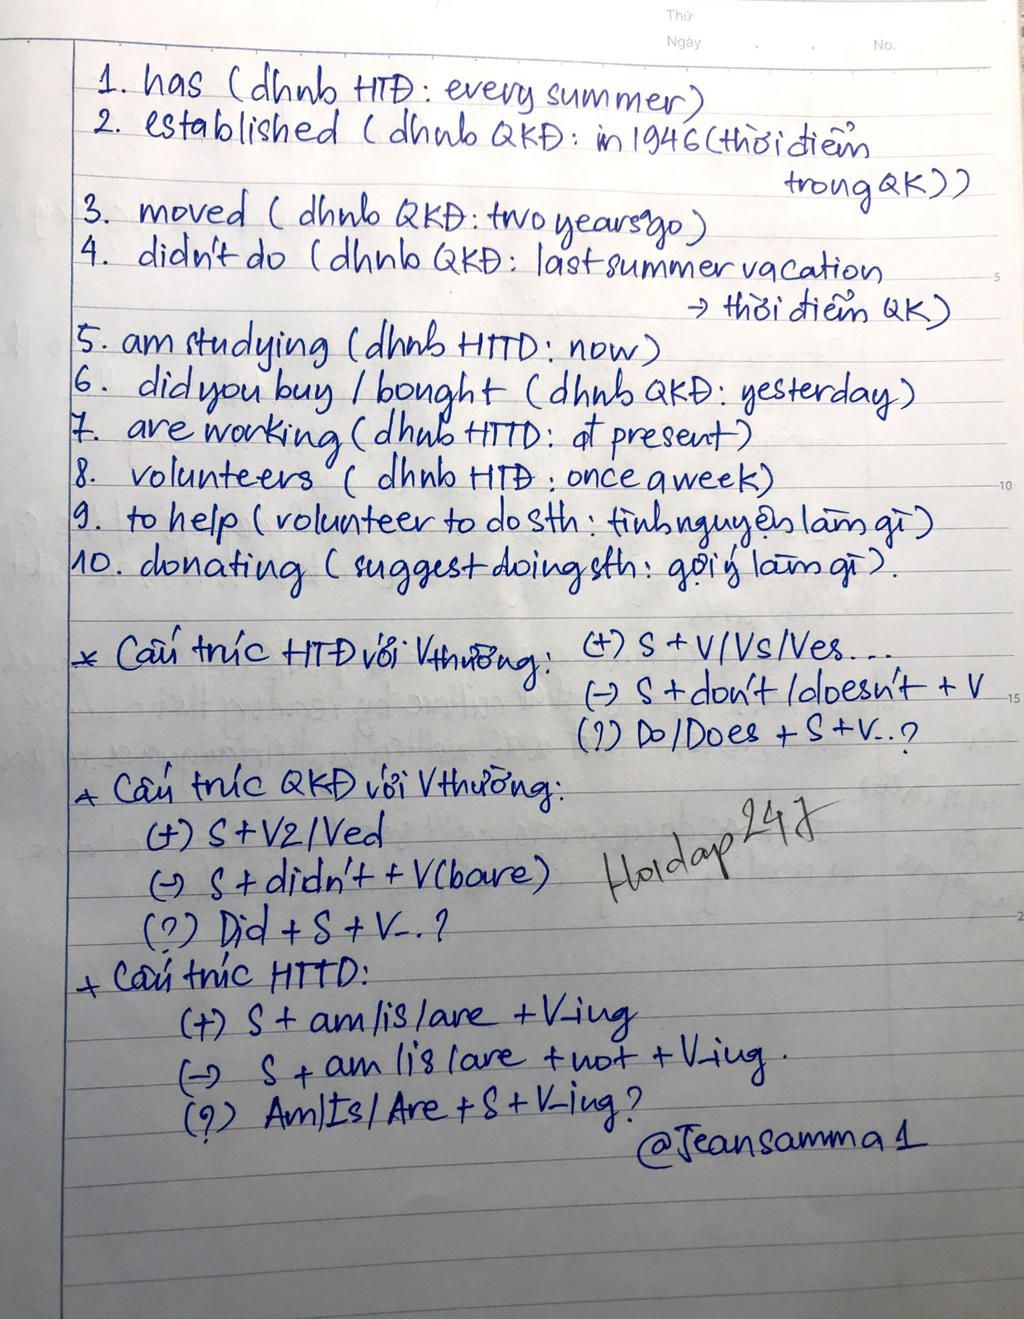 Thứ
Ngày . . No.
1. has (dhnb HTĐ: every summer)
2. established (dhnb QKĐ: in 1946 (thời điểm
trong QK))
3. moved (dhnb QKĐ: two years ago)
4. didn't do (dhnb QKĐ: last summer vacation
→ thời điểm QK)
5
5. am studying (dhnb HTTD: now)
6. did you buy / bought (dhnb QKĐ: yesterday)
7. are working (dhnb HTTD: at present)
8. volunteers (dhnb HTĐ: once a week)
10
9. to help (volunteer to do sth: tình nguyện làm gì)
10. donating (suggest doing sth: gợi ý làm gì).
* Cấu trúc HTĐ với Vthường: (+) S + V/Vs/Ves...
(-) S + don't / doesn't + V
15
(?) Do/Does + S + V...?
* Cấu trúc QKĐ với Vthường:
(+) S + V2/Ved
(-) S + didn't + V(bare)
Hoidap247
(?) Did + S + V...?
2
+ Cấu trúc HTTD:
(+) S + am/is/are + V-ing
(-) S + am/is/are + not + V-ing.
(?) Am/Is/Are + S + V-ing?
@Jeansamma1